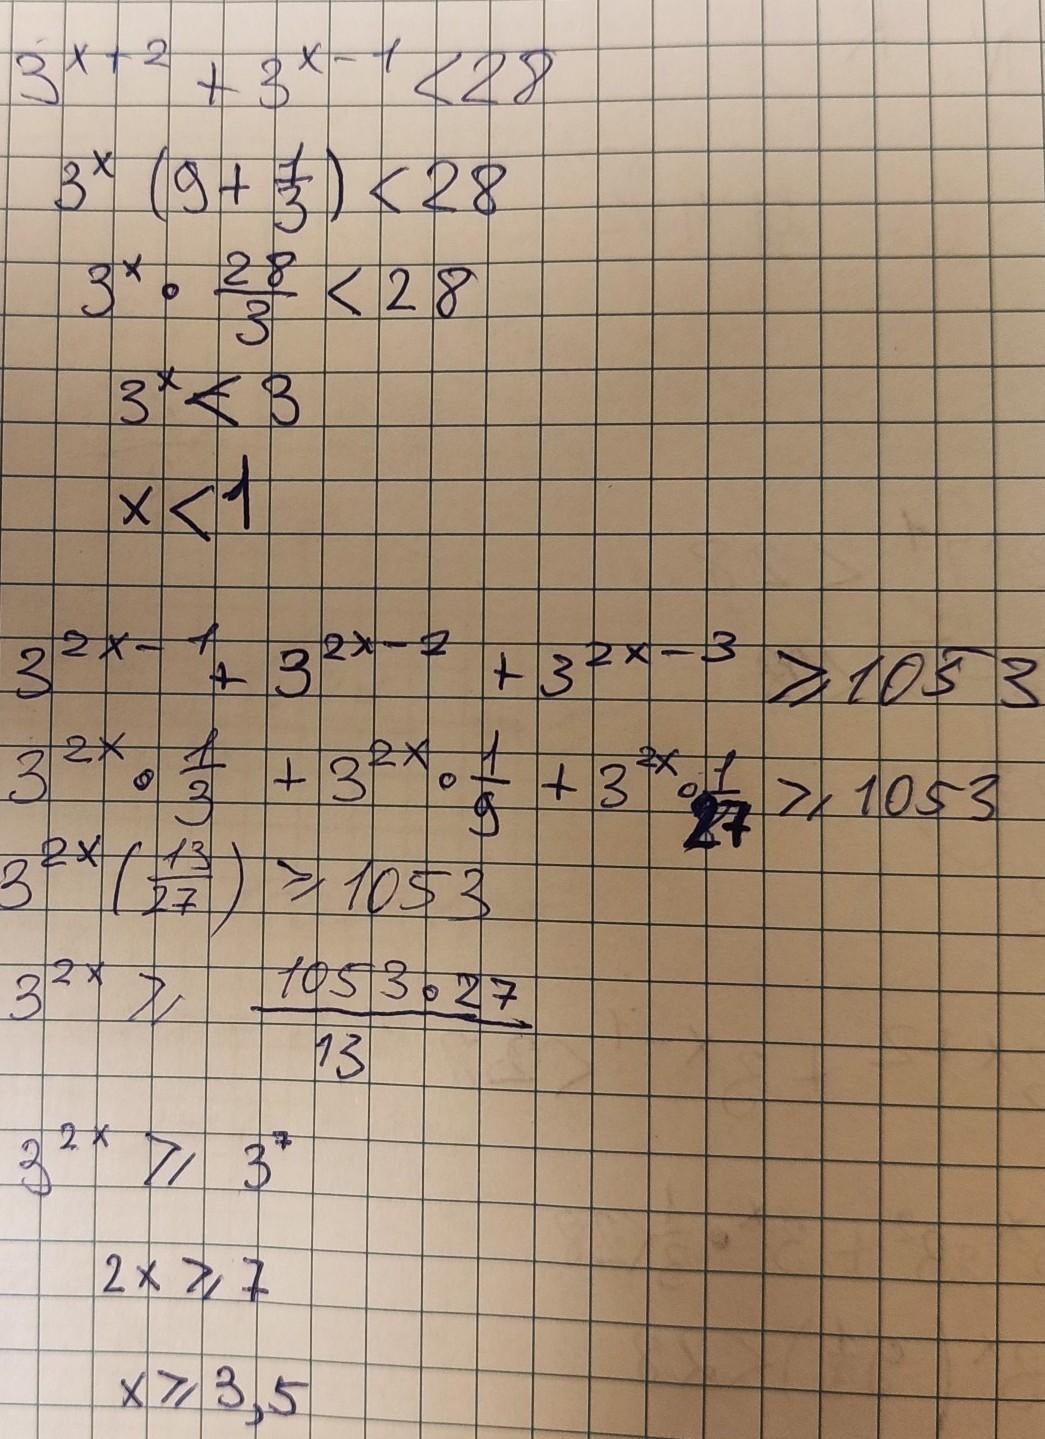 3^{x+2} + 3^{x-1} < 28
3^x (9 + 1/3) < 28
3^x • 28/3 < 28
3^x < 3
x < 1
3^{2x-1} + 3^{2x-2} + 3^{2x-3} ⩾ 1053
3^{2x} • 1/3 + 3^{2x} • 1/9 + 3^{2x} • 1/27 ⩾ 1053
3^{2x} (13/27) ⩾ 1053
3^{2x} ⩾ 1053•27/13
3^{2x} ⩾ 3^7
2x ⩾ 7
x ⩾ 3,5